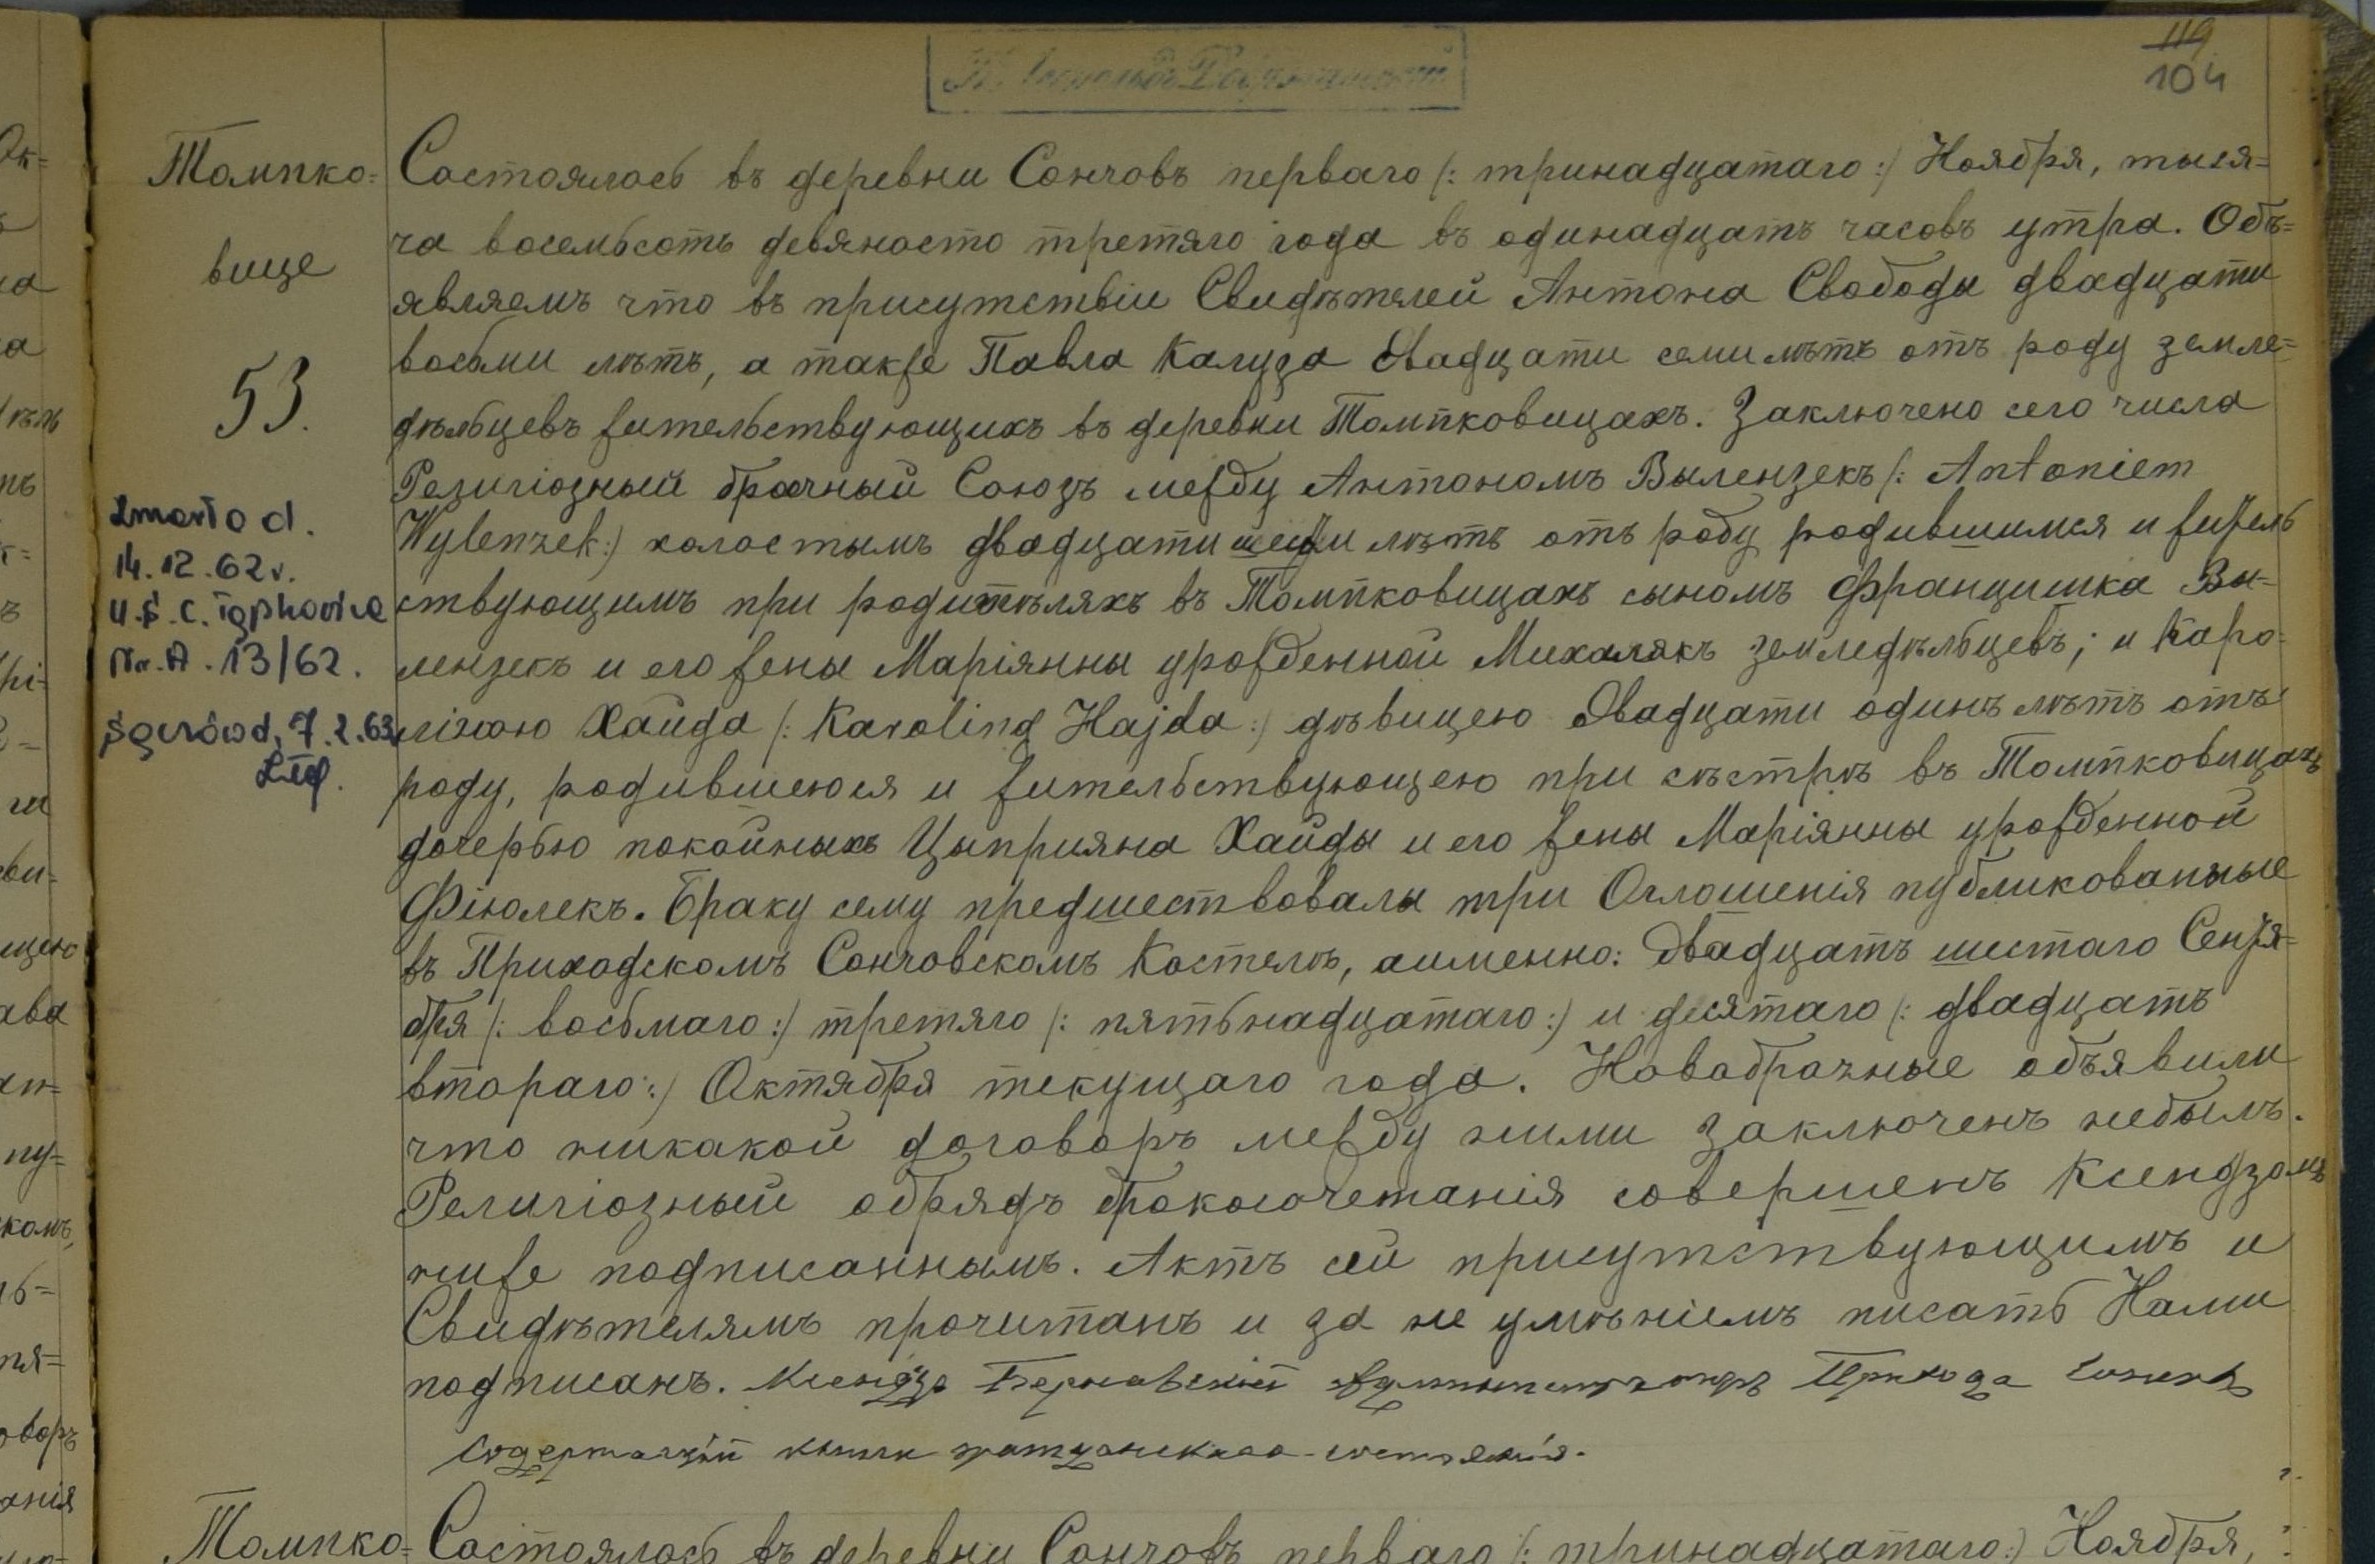 119
104
Томпко=
вице
53.
zmarła d.
14.12.62 r.
U.S.C. Tąpkowice
Nr. A. 13/62.
Sączów d, 7.2.63
Состоялось въ деревни Сончовъ перваго /: тринадцатаго :/ Ноября, тыся=
ча восемьсотъ девяносто третяго года въ одинадцатъ часовъ утра. Объ=
являемъ что въ присутствіи Свидѣтелей Антона Свободы двадцати
восьми лѣтъ, а также Павла Калуза двадцати семи лѣтъ отъ роду земле=
дѣльцевъ жительствующихъ въ деревни Томпковицахъ. Заключено сего числа
Религіозный брачный Союзъ между Антономъ Вылензекъ /: Antoniem
Wylenzek :/ холостымъ двадцати лѣтъ отъ роду родившимся и житель
ствующимъ при родитѣляхъ въ Томпковицахъ сыномъ Францишка Вы=
лензекъ и его жены Маріянны урожденной Михалякъ земледѣльцевъ; и Каро=
ліною Хайда /: Karoliną Hajda :/ дѣвицею двадцати одинъ лѣтъ отъ
роду, родившеюся и жительствующею при сѣстрѣ въ Томпковицахъ
дочерью покойныхъ Цыприяна Хайды и его жены Маріянны урожденной
Фіюлекъ. Браку сему предшествовалы три Оглошенія публикованные
въ Приходскомъ Сончовскомъ Костелѣ, аименно: двадцатъ шестаго Сентя=
бря /: восьмаго :/ третяго /: пятьнадцатаго :/ и десятаго /: двадцатъ
втораго :/ Октября текущаго года. Новабрачные объявили
что никакой договоръ между ними заключенъ небылъ.
Религіозный обрядъ бракосочетанія совершенъ Ксендзомъ
ниже подписаннымъ. Актъ сей присутствующимъ и
Свидѣтелямъ прочитанъ и за не умѣніемъ писать Нами
подписанъ. Ксендзъ Администраторъ Прихода
Содержащій книги гражданскаго состоянія.
Томпко= Состоялось въ деревни Сончовъ перваго /: тринадцатаго :/ Ноября,